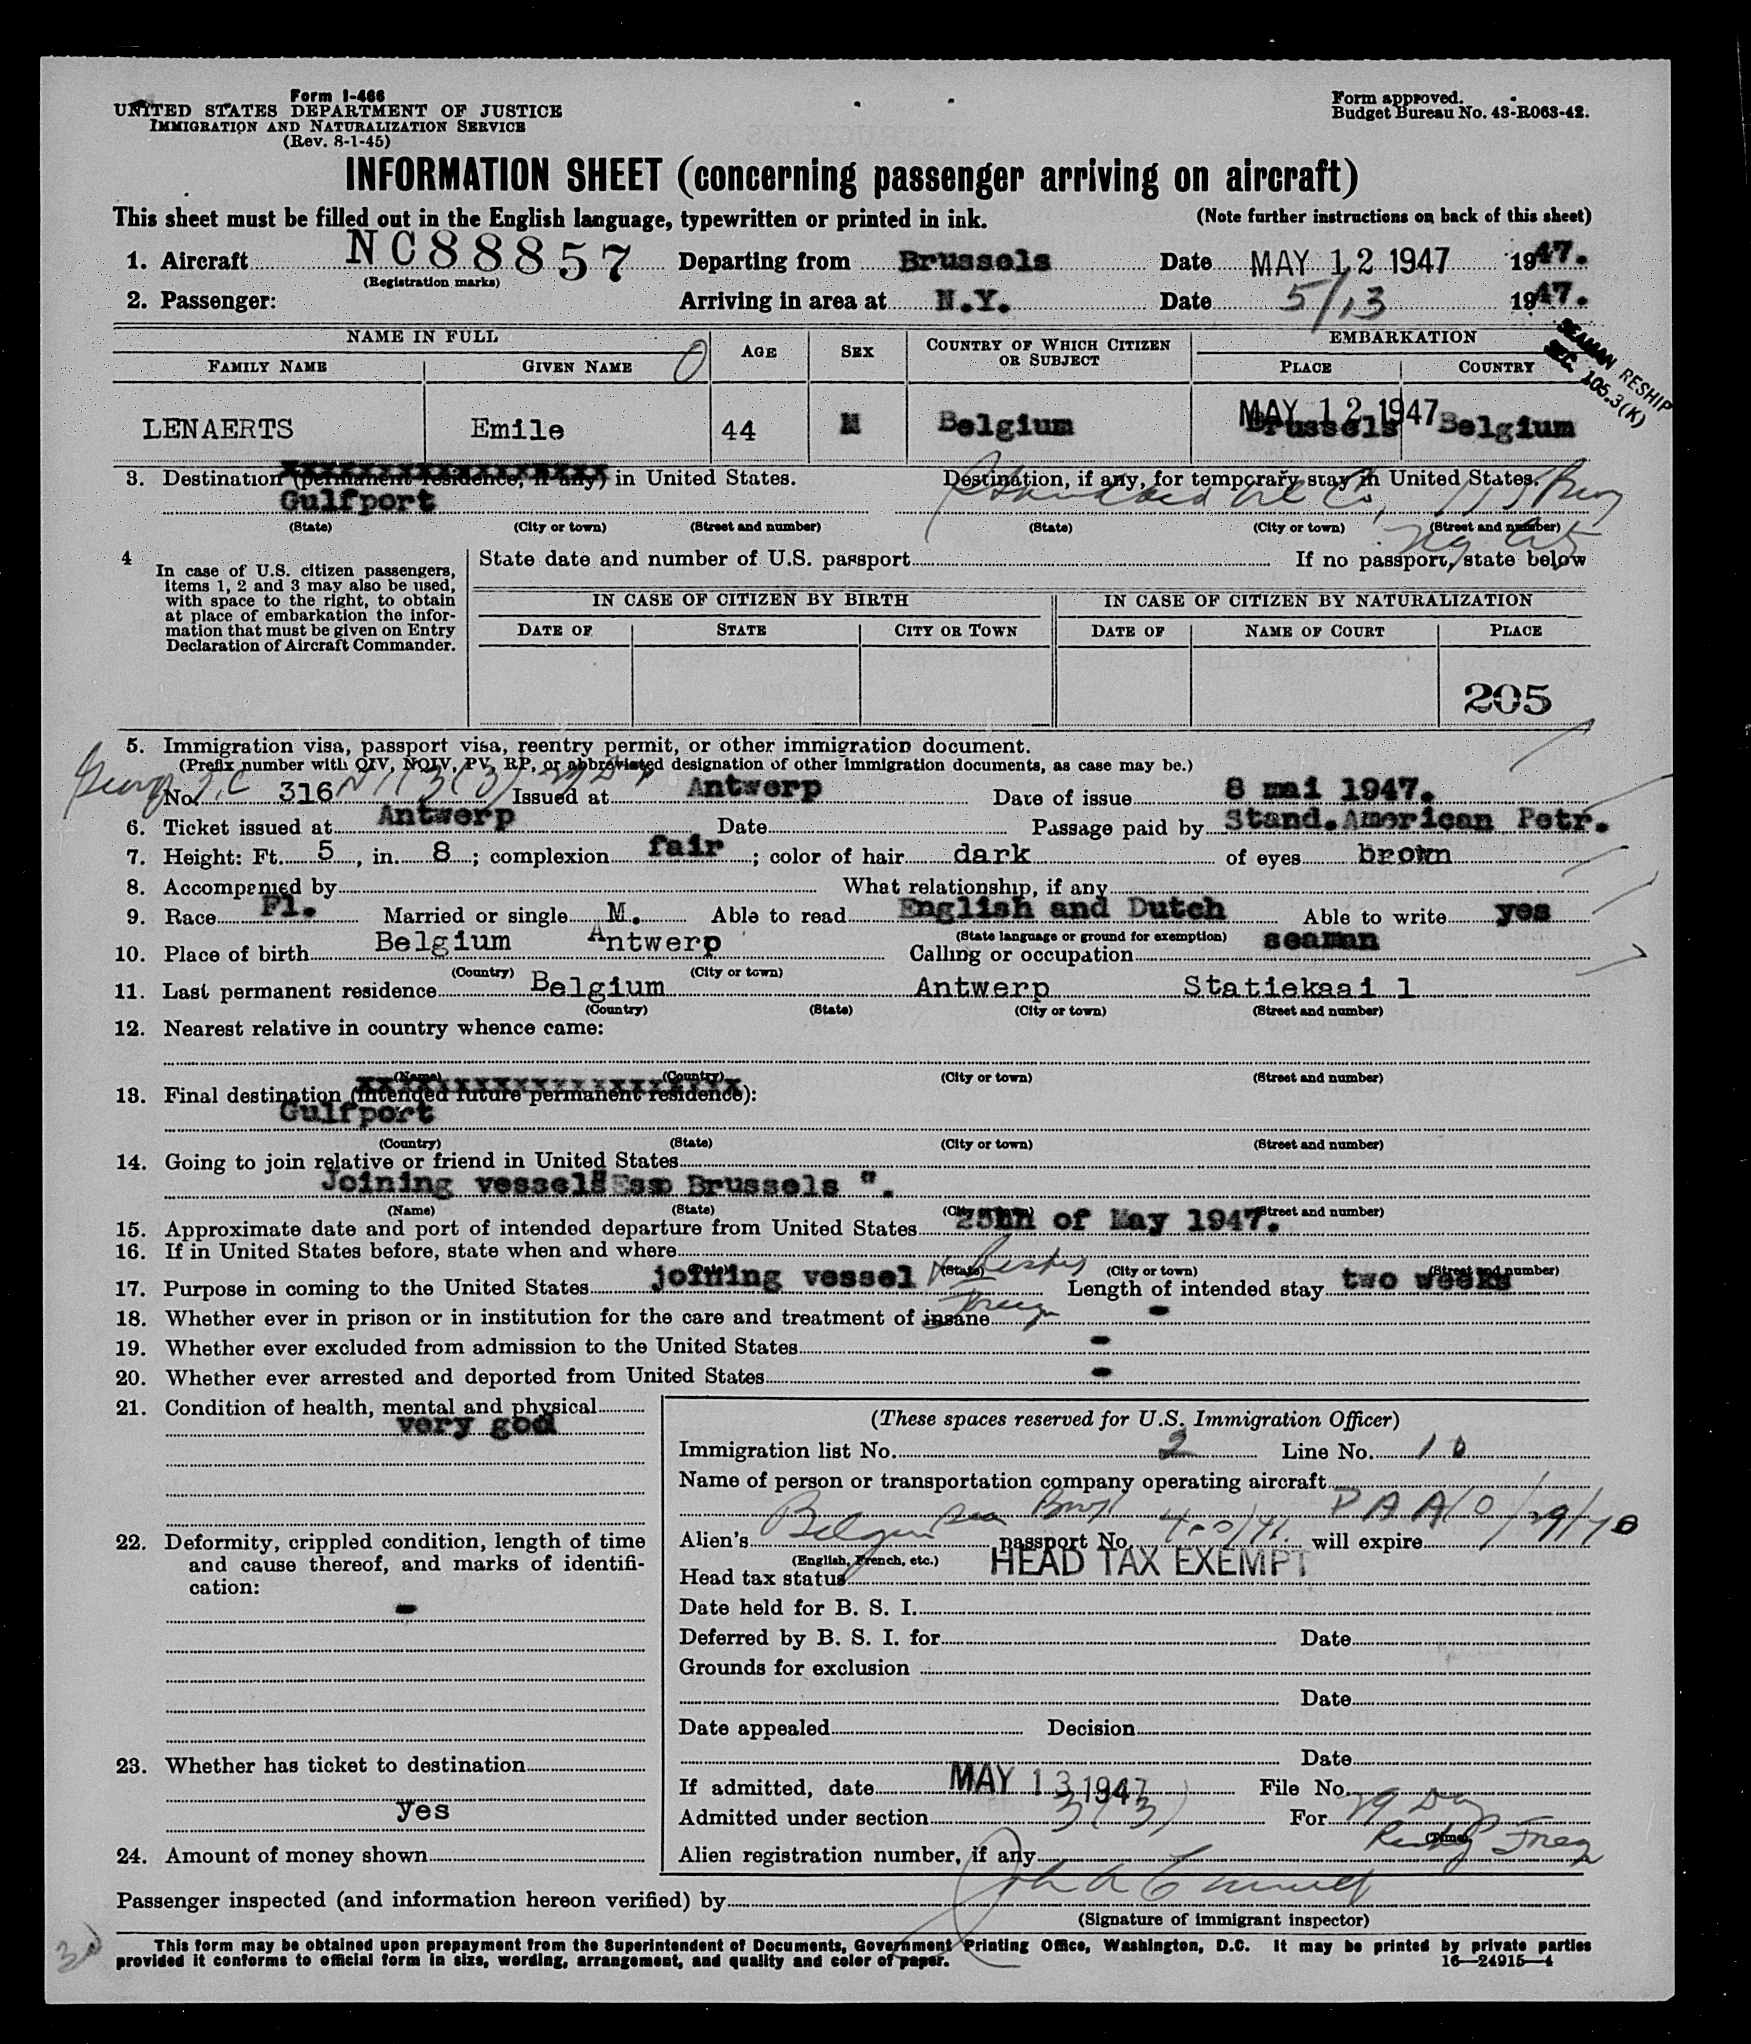 Form I-466
UNITED STATES DEPARTMENT OF JUSTICE
IMMIGRATION AND NATURALIZATION SERVICE
(Rev. 8-1-45)
Form approved.
Budget Bureau No. 43-R063-42.
INFORMATION SHEET (concerning passenger arriving on aircraft)
This sheet must be filled out in the English language, typewritten or printed in ink. (Note further instructions on back of this sheet)
1. Aircraft NC88857 Departing from Brussels Date MAY 12 1947 1947.
(Registration marks)
2. Passenger: Arriving in area at N.Y. Date 5/13 1947.
SEAMAN RESHIP
SEC. 105.3(K)
NAME IN FULL AGE SEX COUNTRY OF WHICH CITIZEN OR SUBJECT EMBARKATION
FAMILY NAME GIVEN NAME PLACE COUNTRY
MAY 12 1947
LENAERTS Emile 44 M Belgium Brussels Belgium
3. Destination (permanent residence, if any) in United States. Destination, if any, for temporary stay in United States.
Gulfport Standard Oil Co,
(State) (City or town) (Street and number) (State) (City or town) (Street and number)
4 In case of U.S. citizen passengers, items 1, 2 and 3 may also be used, with space to the right, to obtain at place of embarkation the information that must be given on Entry Declaration of Aircraft Commander.
State date and number of U.S. passport If no passport, state below
IN CASE OF CITIZEN BY BIRTH IN CASE OF CITIZEN BY NATURALIZATION
DATE OF STATE CITY OR TOWN DATE OF NAME OF COURT PLACE
205
5. Immigration visa, passport visa, reentry permit, or other immigration document.
(Prefix number with QIV, NQIV, PV, RP, or abbreviated designation of other immigration documents, as case may be.)
No. 316 Issued at Antwerp Date of issue 8 mai 1947.
6. Ticket issued at Antwerp Date Passage paid by Stand.American Petr.
7. Height: Ft. 5, in. 8; complexion fair; color of hair dark of eyes brown
8. Accompanied by What relationship, if any
9. Race Fl. Married or single M. Able to read English and Dutch Able to write yes
(State language or ground for exemption)
10. Place of birth Belgium Antwerp Calling or occupation seaman
(Country) (City or town)
11. Last permanent residence Belgium Antwerp Statiekaai 1
(Country) (State) (City or town) (Street and number)
12. Nearest relative in country whence came:
(Name) (Country) (City or town) (Street and number)
13. Final destination (intended future permanent residence):
Gulfport
(Country) (State) (City or town) (Street and number)
14. Going to join relative or friend in United States
Joining vessel "Esso Brussels ".
(Name) (State) (City or town) (Street and number)
15. Approximate date and port of intended departure from United States 25th of May 1947.
16. If in United States before, state when and where
(Date) (State) (City or town) (Street and number)
17. Purpose in coming to the United States joining vessel Length of intended stay two weeks
18. Whether ever in prison or in institution for the care and treatment of insane -
19. Whether ever excluded from admission to the United States -
20. Whether ever arrested and deported from United States -
21. Condition of health, mental and physical
very good
22. Deformity, crippled condition, length of time
and cause thereof, and marks of identifi-
cation:
-
23. Whether has ticket to destination
yes
24. Amount of money shown
(These spaces reserved for U.S. Immigration Officer)
Immigration list No. 2 Line No. 10
Name of person or transportation company operating aircraft
PAA
Alien's Belgian passport No. will expire 10/29/48
(English, French, etc.)
Head tax status HEAD TAX EXEMPT
Date held for B. S. I.
Deferred by B. S. I. for Date
Grounds for exclusion
Date
Date appealed Decision
Date
If admitted, date MAY 13 1947 File No.
Admitted under section 3(3) For 29 Days
(Time)
Alien registration number, if any
Passenger inspected (and information hereon verified) by
(Signature of immigrant inspector)
This form may be obtained upon prepayment from the Superintendent of Documents, Government Printing Office, Washington, D.C. It may be printed by private parties
provided it conforms to official form in size, wording, arrangement, and quality and color of paper. 16—24915-4